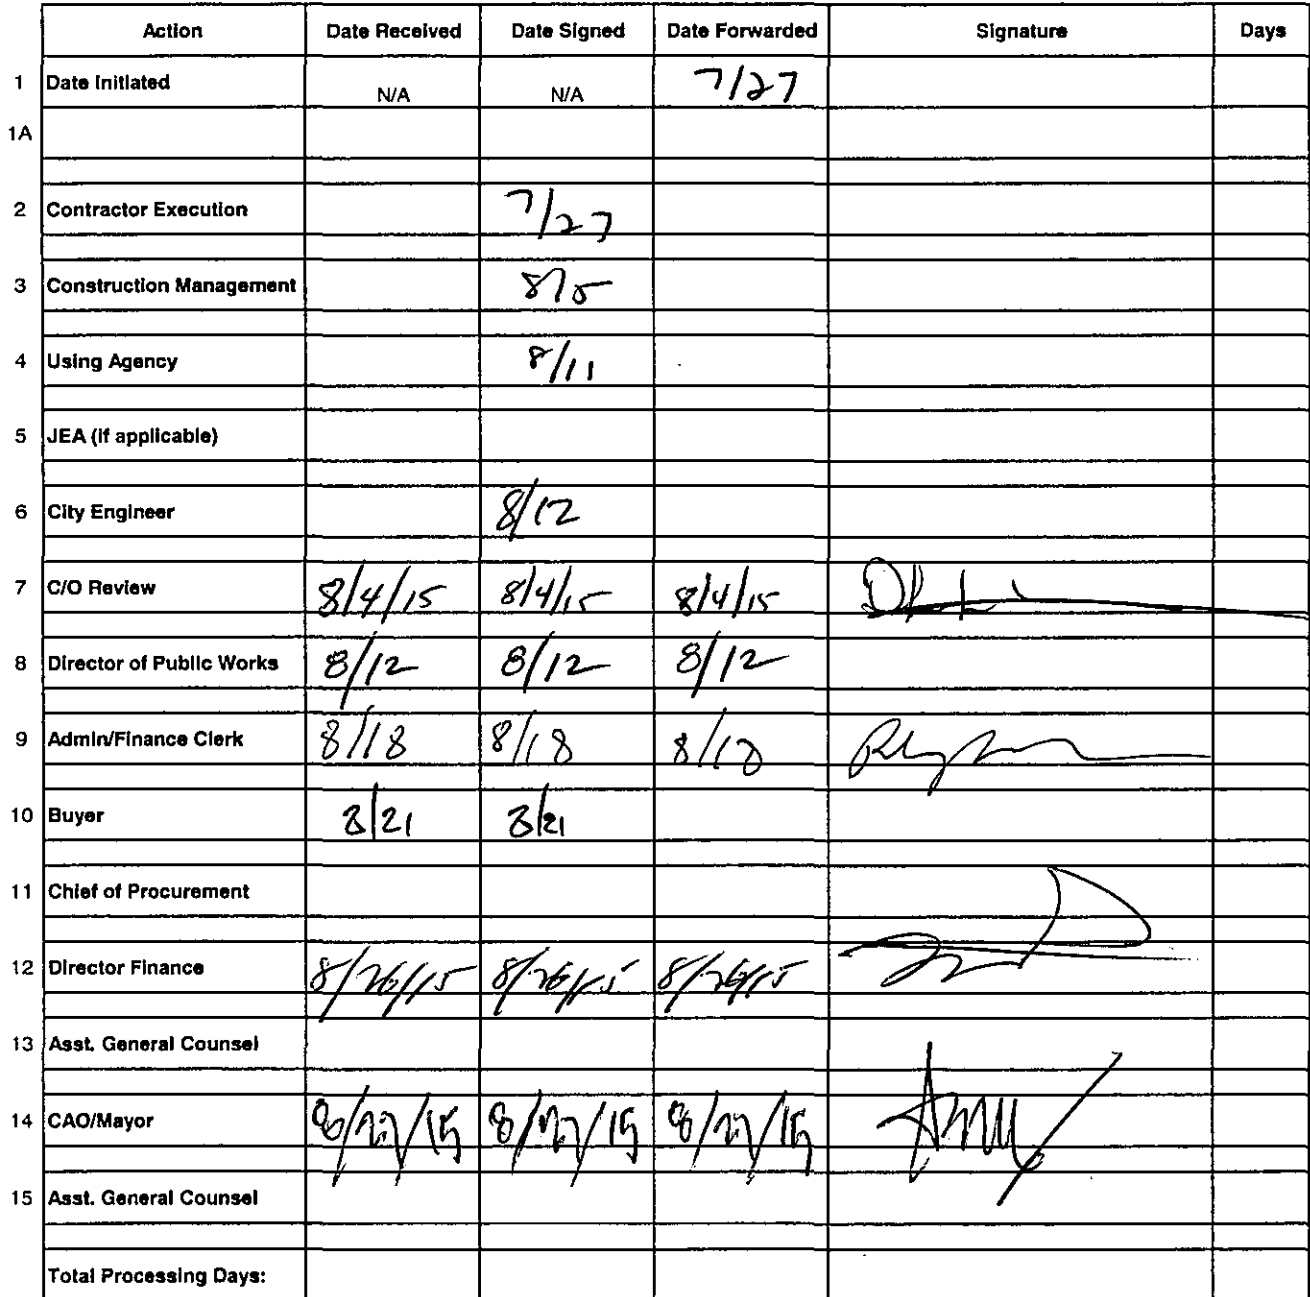 Action Date Received Date Signed Date Forwarded Signature Days
1 Date Initiated N/A N/A 7/27
1A
2 Contractor Execution 7/27
3 Construction Management 8/5
4 Using Agency 8/11
5 JEA (if applicable)
6 City Engineer 8/12
7 C/O Review 8/4/15 8/4/15 8/4/15
8 Director of Public Works 8/12 8/12 8/12
9 Admin/Finance Clerk 8/18 8/18 8/18
10 Buyer 8/21 8/21
11 Chief of Procurement
12 Director Finance 8/26/15 8/26/15 8/26/15
13 Asst. General Counsel
14 CAO/Mayor 8/27/15 8/27/15 8/27/15
15 Asst. General Counsel
Total Processing Days: